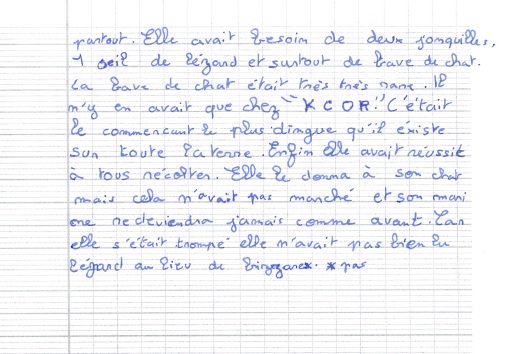 partout. Elle avait besoin de deux jonquilles,
1 oeil de lézard et surtout de bave de chat.
La bave de chat était très très rare. Il
n'y en avait que chez "KCOR". C'était
le commencant le plus dingue qu'il existe
sur toute la terre. Enfin elle avait réussit
à tous récolter. Elle le donna à son chat
mais cela n'avait pas marché et son mari
ne redeviendra jamais comme avant. Car
elle s'était trompé elle n'avait pas bien lu
lézard au lieu de * pas